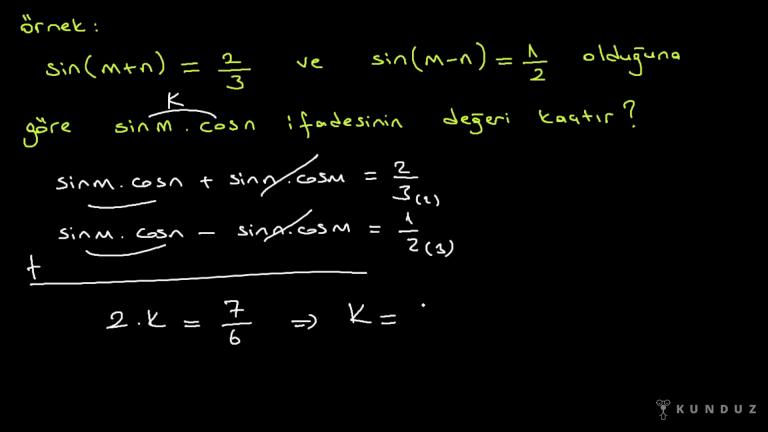 örnek:
sin(m+n) = 2/3 ve sin(m-n) = 1/2 olduğuna
K
göre sinm.cosn ifadesinin değeri kaçtır?
sinm.cosn + sinn.cosm = 2/3 (2)
sinm.cosn - sinn.cosm = 1/2 (3)
+
2.K = 7/6 ⇒ K =
KUNDUZ